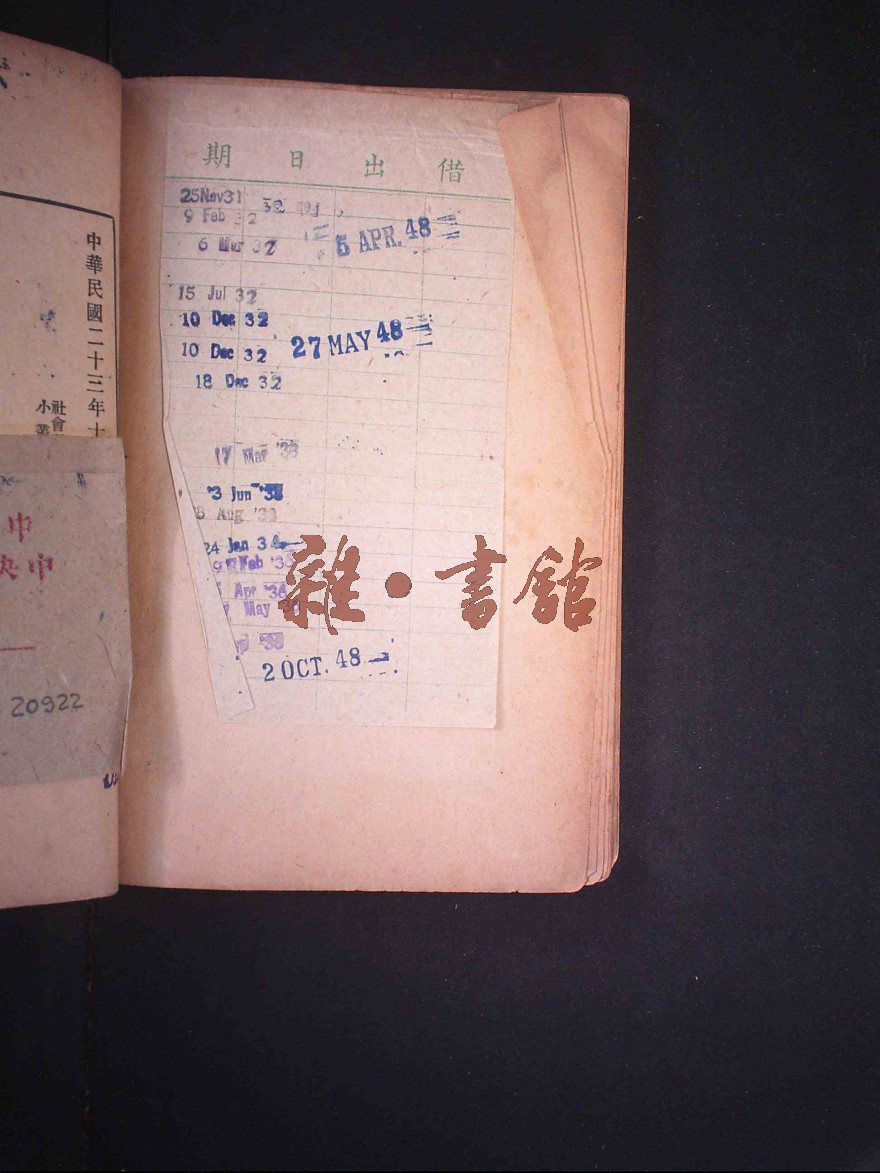 中華民國二十三年十
社會
小叢
中
央中
20922
期日出借
25Nov31
9 Feb 32
6 Mar 32
5 APR. 48
15 Jul 32
10 Dec 32
10 Dec 32
27 MAY 48
18 Dec 32
17 Mar '33
3 Jun '33
8 Aug '33
24 Jan 34
Feb
Apr '36
May
2 OCT. 48
雜·書館